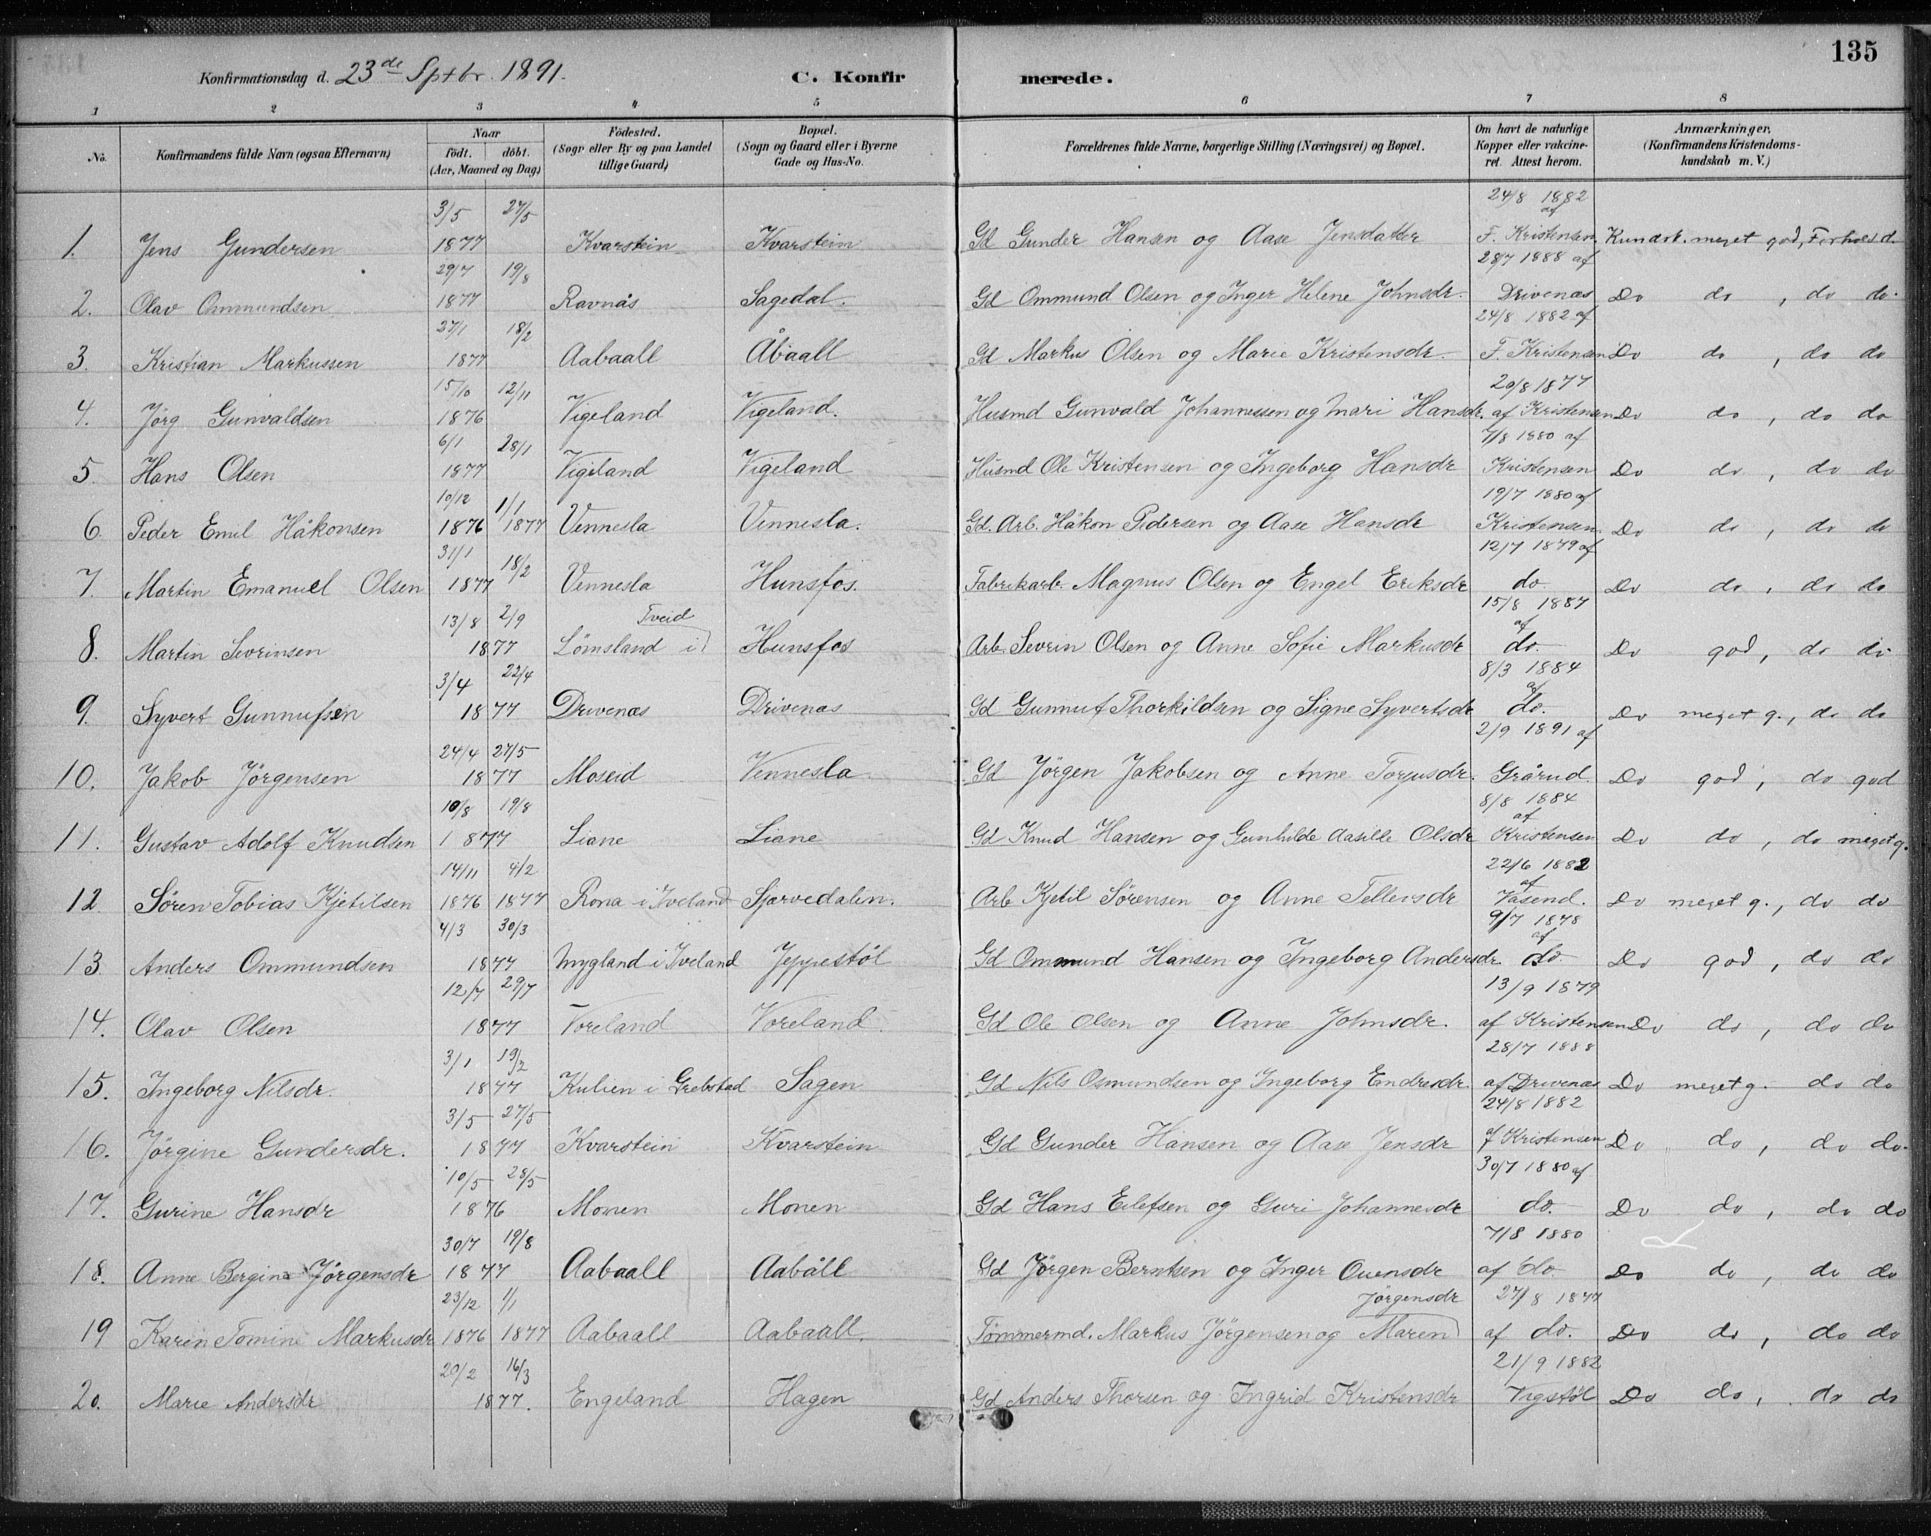 135
Konfirmationsdag d. 23de Sptbr. 1891. C. Konfirmerede.
1 2 3 4 5 6 7 8
No. Konfirmandens fulde Navn (ogsaa Efternavn) Naar født. døbt. (Aar, Maaned og Dag) Fødested. (Sogn eller By og paa Landet tillige Gaard) Bopæl. (Sogn og Gaard eller i Byerne Gade og Hus-No. Forældrenes fulde Navne, borgerlige Stilling (Næringsvei) og Bopæl. Om havt de naturlige Kopper eller vakcineret. Attest herom. Anmærkninger. (Konfirmandens Kristendomskundskab m. V.)
1. Jens Gundersen 3/5 1877 27/5 Kvarstein Kvarstein Gd Gunder Hansen og Aase Jensdatter 24/8 1882 af F. Kristensen Kundsk. meget god, Forhold d.
2. Olav Ommundsen 29/7 1877 19/8 Ravnås Sagedal. Gd Ommund Olsen og Inger Helene Johnsdr. 28/7 1888 af Drivenas Do do, do do.
3. Kristian Markussen 27/1 1877 18/2 Aabaall Åbaall Gd Markus Olsen og Marie Kristensdr. 24/8 1882 af F. Kristensen Do do, do do
4. Jörg Gunvaldsen 15/10 1876 12/11 Vigeland Vigeland. Husmd Gunvald Johannessen og Mari Hansdr. 20/8 1877 af Kristensen Do do, do do
5. Hans Olsen 6/1 1877 28/1 Vigeland Vigeland Husmd Ole Kristensen og Ingeborg Hansdr 7/8 1880 af Kristensen Do do, do do
6. Peder Emil Håkonsen 10/12 1876 1/1 1877 Vennesla Vennesla. Gd. Arb. Håkon Pedersen og Aase Hansdr 19/7 1880 af Kristensen Do do, do do
7. Martin Emanuel Olsen 31/1 1877 18/2 Vennesla Hunsfos. Fabrikarb. Magnus Olsen og Engel Eriksdr 12/7 1879 af do. Do do, do do
8. Martin Sevrinsen 13/8 2/9 1877 Lömsland i Tveid Hunsfos Arb. Sevrin Olsen og Anne Sofie Markusdr 15/8 1887 af do. Do god, do do
9. Syvert Gunnufsen 3/4 22/4 1877 Drivenas Drivenas Gd Gunnuf Thorkildsen og Signe Syvertsdr 8/3 1884 af do. Do meget g., do do
10. Jakob Jörgensen 24/4 27/5 1877 Moseid Vennesla Gd Jörgen Jakobsen og Anne Torjusdr. 2/9 1891 af Grårud. Do god, do god
11. Gustav Adolf Knudsen 10/8 19/8 1877 Liane Liane Gd Knud Hansen og Gunhilde Aasille Olsdr 8/8 1884 af Kristensen Do do, do meget g.
12 Sören Tobias Kjetilsen 14/11 1876 4/2 1877 Rona i Iveland Sjærvedalen. Arb Kjetil Sörensen og Anne Tellevsdr 22/6 1882 af Vasend. Do meget g., do do
13 Anders Ommundsen 4/3 30/3 1877 Mygland i Iveland Jeppestöl Gd Ommund Hansen og Ingeborg Andersdr 9/7 1878 af do Do god, do do
14. Olav Olsen 12/7 29/7 1877 Voreland Voreland Gd Ole Olsen og Anne Johnsdr. 13/9 1879 af Kristensen Do do, do do
15. Ingeborg Nilsdr. 3/1 19/2 1877 Kulien i Grebstad Sagen Gd Nils Osmundsen og Ingeborg Endresdr 28/7 1888 af Drivenas Do meget g. do do
16. Jörgine Gundersdr. 3/5 27/5 1877 Kvarstein Kvarstein Gd Gunder Hansen og Aase Jensdr 24/8 1882 af Kristensen Do do, do do.
17. Gurine Hansdr 10/5 28/5 1876 Monen Monen Gd Hans Eilefsen og Guri Johannesdr 30/7 1880 af do. Do do, do do
18. Anne Bergine Jörgensdr 30/7 19/8 1877 Aabaall Aabåll Gd Jörgen Berntsen og Inger Ouensdr 7/8 1880 af do Do do, do do
19 Karen Tomine Markusdr 23/12 1876 1/1 1877 Aabaall Aabaall. Tömmermd. Markus Jörgensen og Maren Jörgensdr 27/8 1877 af do. Do do, do do
20. Marie Andersdr 20/2 16/3 1877. Engeland Hagen Gd Anders Thorsen og Ingrid Kristensdr 21/9 1882 Vigstöl Do do, do do